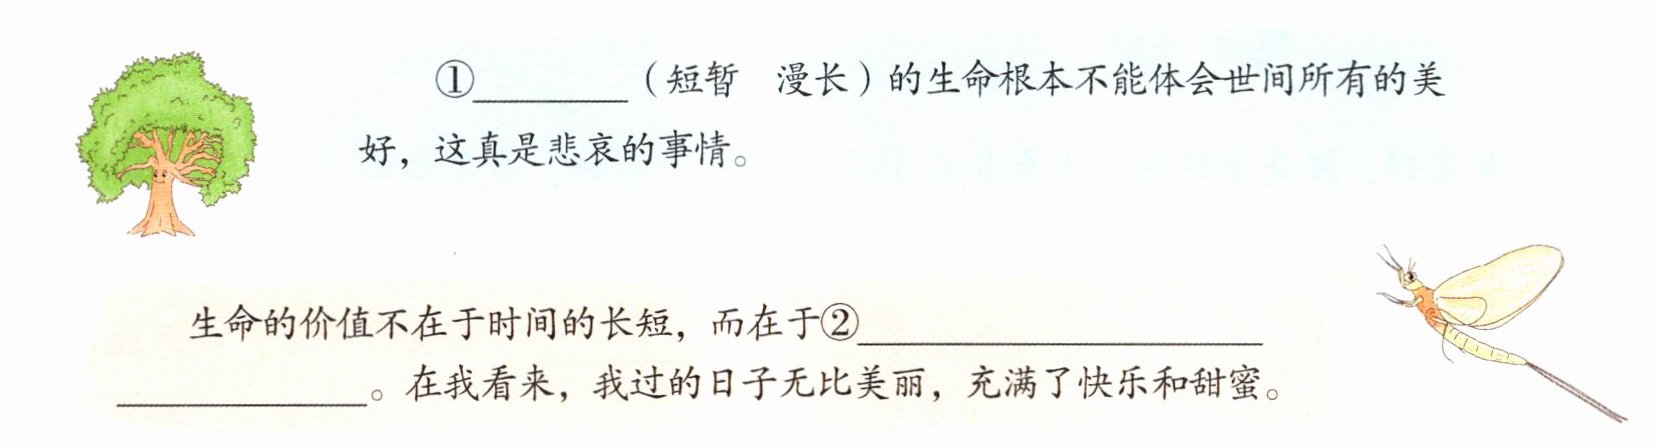 ①________（短暂　漫长）的生命根本不能体会世间所有的美
好，这真是悲哀的事情。
生命的价值不在于时间的长短，而在于②____________________
____________。在我看来，我过的日子无比美丽，充满了快乐和甜蜜。